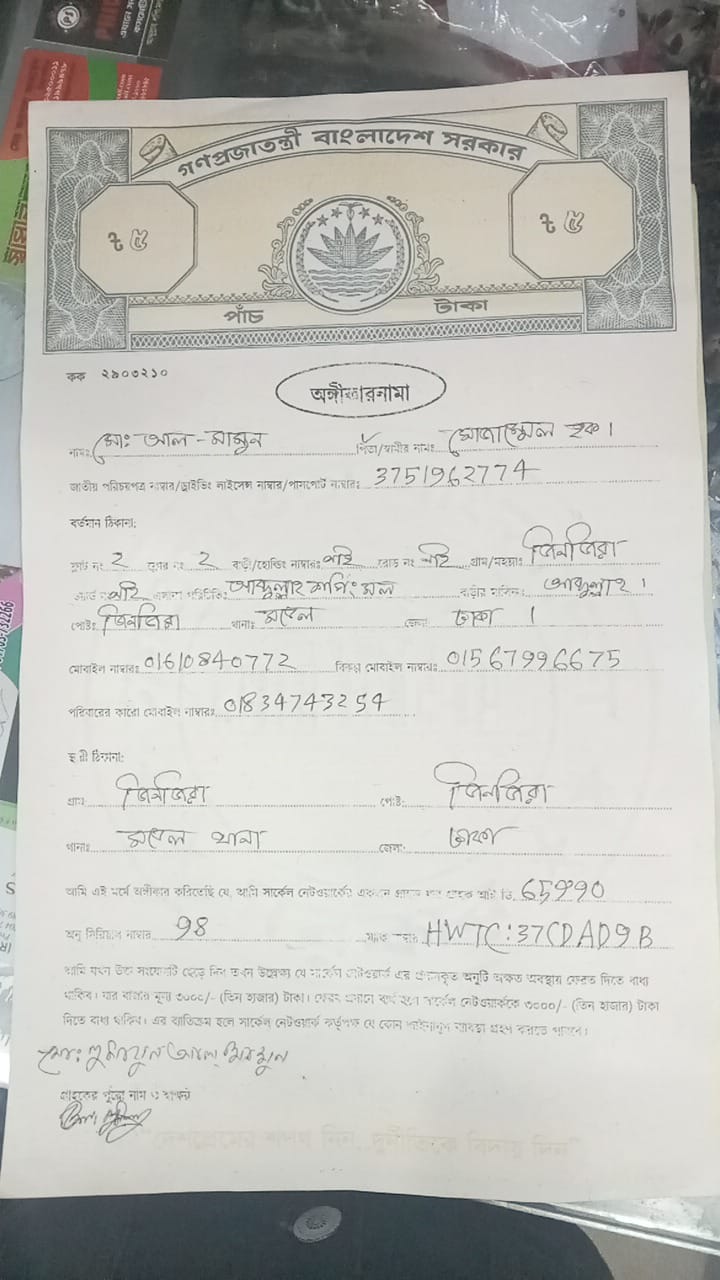 গণপ্রজাতন্ত্রী বাংলাদেশ সরকার
৳ ৫ ৳ ৫
পাঁচ টাকা
কক ২৯০৩২১০
অঙ্গীকারনামা
নামঃ মোঃ আল-মামুন পিতা/স্বামীর নামঃ মোজাম্মেল হক।
জাতীয় পরিচয়পত্র নাম্বার/ড্রাইভিং লাইসেন্স নাম্বার/পাসপোর্ট নাম্বারঃ 3751962774
বর্তমান ঠিকানা:
ফ্লাট নং 2 2 বাড়ী/হোল্ডিং নাম্বারঃ নাই রোড নং নাই গ্রাম/মহল্লাঃ জিনজিরা
নাই আব্দুল্লাহ শপিং মল আব্দুল্লাহ।
পোষ্টঃ জিনজিরা থানাঃ মডেল জেলা ঢাকা।
মোবাইল নাম্বারঃ 01610840772 বিকল্প মোবাইল নাম্বারঃ 01567996675
পরিবারের কারো মোবাইল নাম্বারঃ 01834743254
স্থায়ী ঠিকানা:
গ্রাম: জিনজিরা পোষ্ট: জিনজিরা
থানাঃ মডেল থানা জেলা: ঢাকা
আমি এই মর্মে অঙ্গীকার করিতেছি যে, আমি সার্কেল নেটওয়ার্কের আই ডি 65990
অনু সিরিয়াল নাম্বার 98 HWTC:37CDAD9B
আমি যখন উক্ত সংযোগটি ছেড়ে দিব তখন উল্লেখ্য যে সার্কেল নেটওয়ার্ক এর প্রদানকৃত অনুটি অক্ষত অবস্থায় ফেরত দিতে বাধ্য
থাকিব। যার বাজার মূল্য ৩০০০/- (তিন হাজার) টাকা। ফেরৎ প্রদানে ব্যর্থ হলে সার্কেল নেটওয়ার্ককে ৩০০০/- (তিন হাজার) টাকা
দিতে বাধ্য থাকিব। এর ব্যতিক্রম হলে সার্কেল নেটওয়ার্ক কর্তৃপক্ষ যে কোন আইনানুগ ব্যবস্থা গ্রহণ করতে পারবে।
মোঃ হুমায়ুন আল মামুন
গ্রাহকের পুরো নাম ও স্বাক্ষর
"দেশপ্রেমের শপথ নিন, দুর্নীতিকে বিদায় দিন"